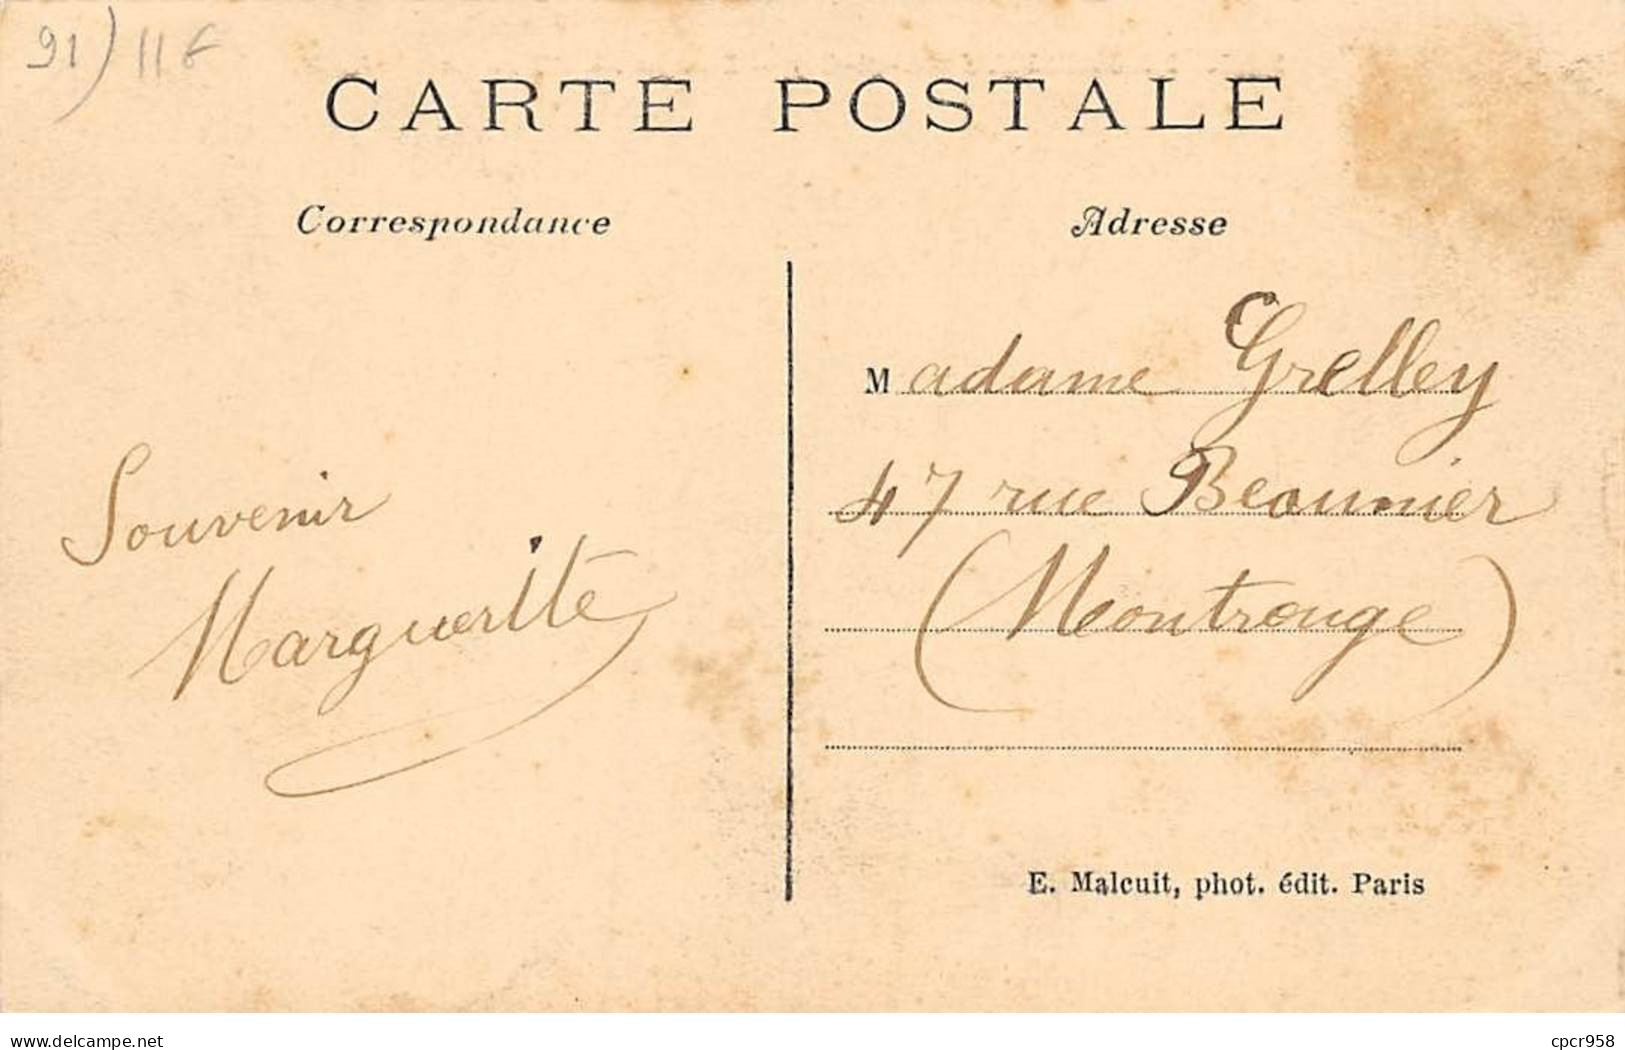 91) 11 €
CARTE POSTALE
Correspondance
Adresse
Madame Grelley
47 rue Beaunier
(Montrouge)
Souvenir
Marguerite
E. Malcuit, phot. édit. Paris
www.delcampe.net
cpcr958